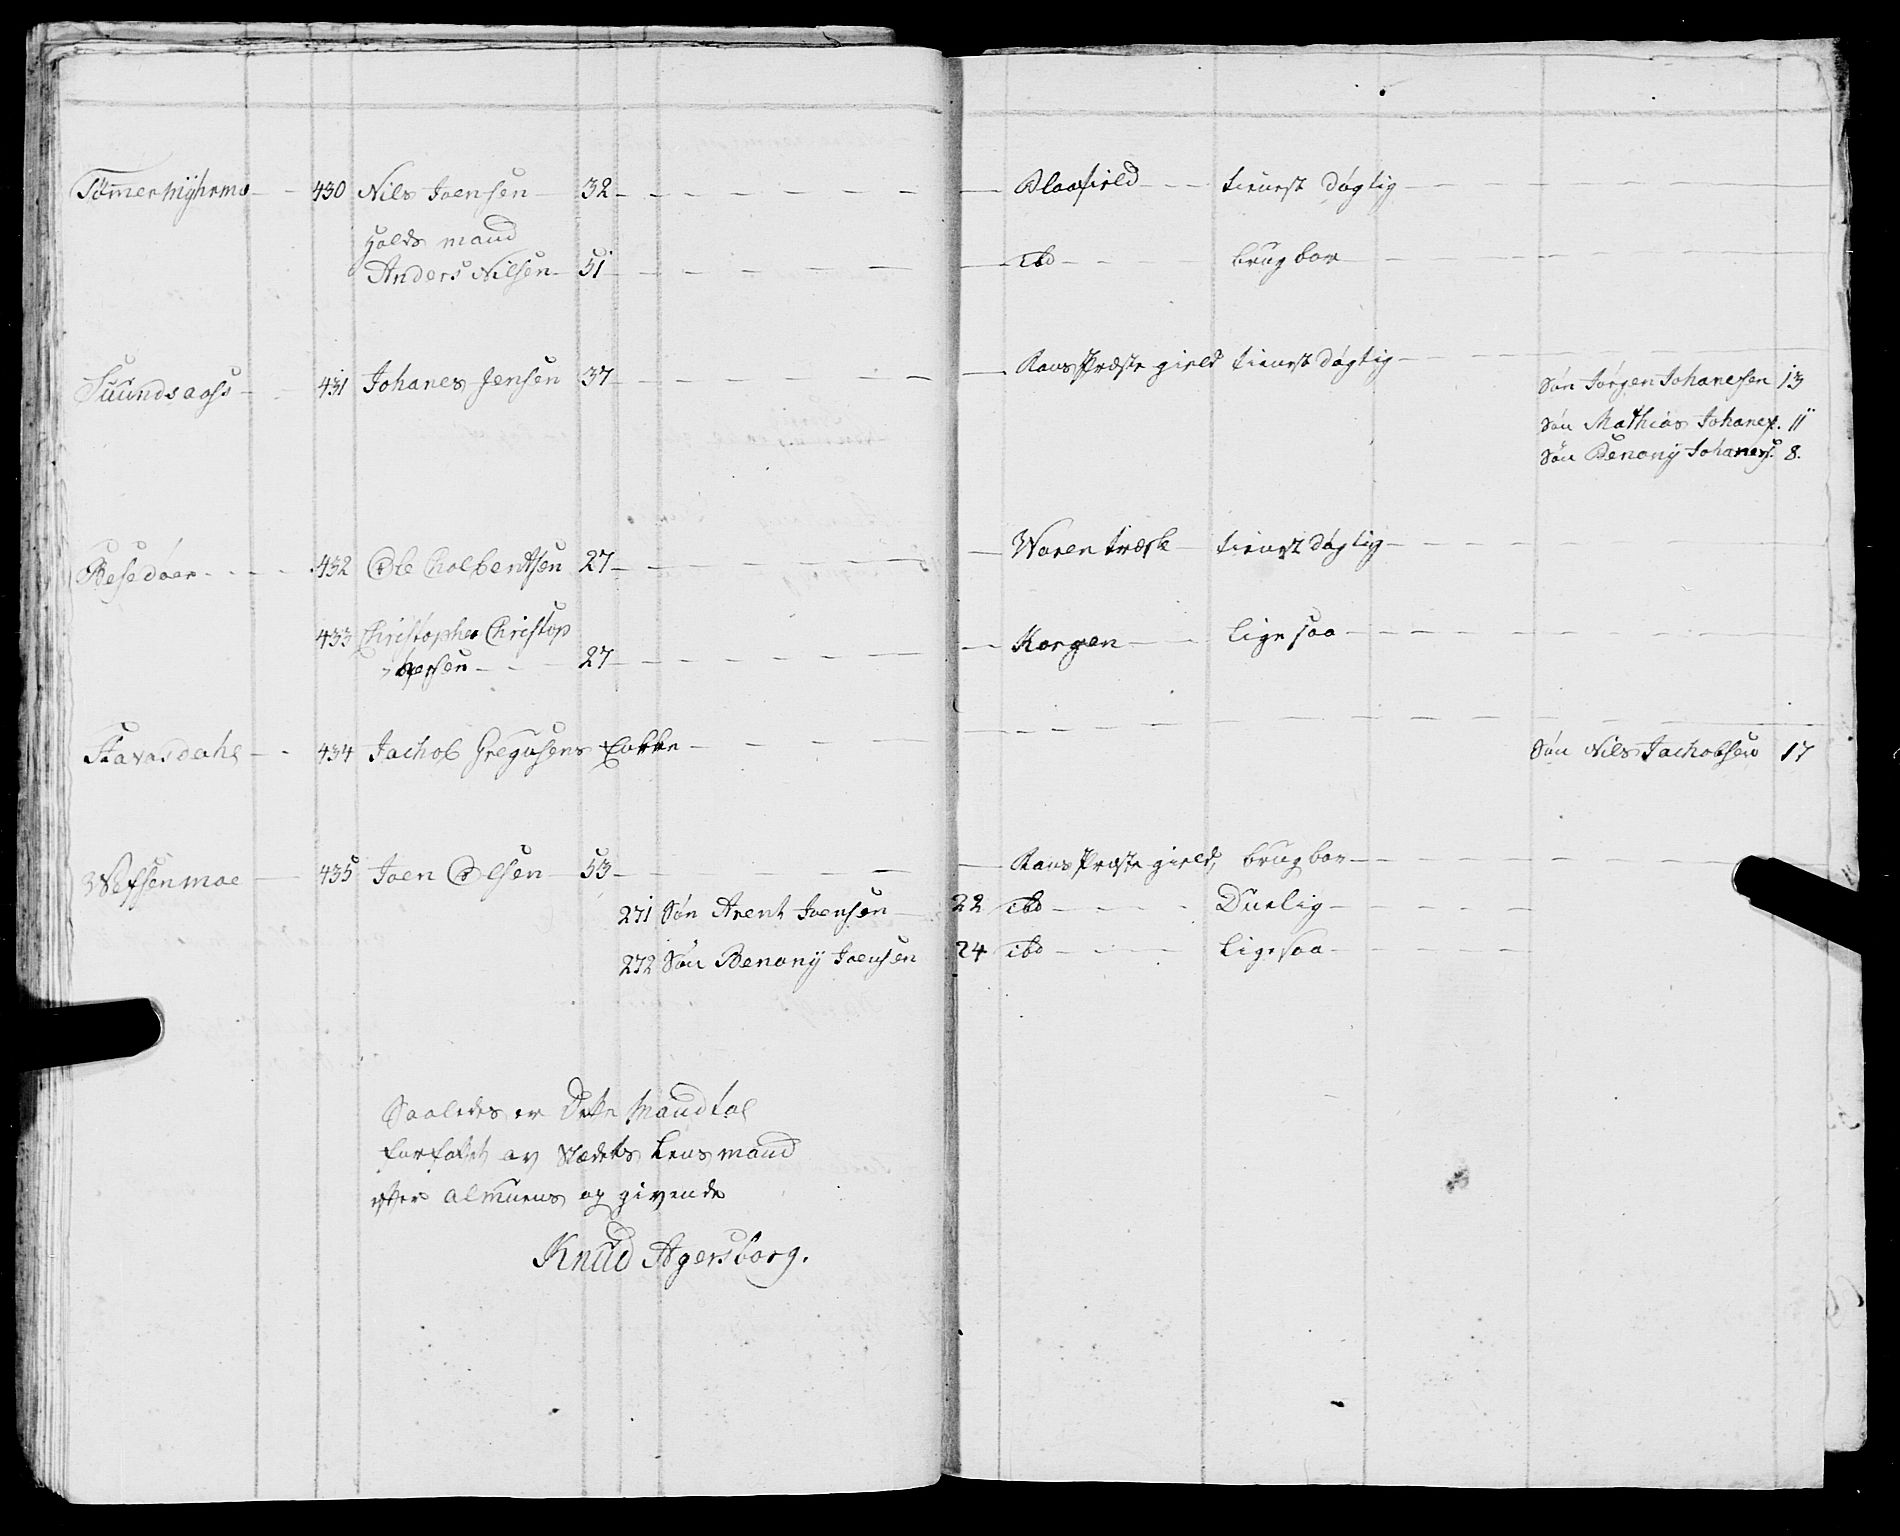 Tømerhÿhrmo 430 Nils Joensen 32 Blaafield tienst døgtig
Holds mand
Anders Nilsen 51 ibd brugbar
Suundsaass 431 Johanes Jensen 37 Rans Præste gield tienst døgtig
Søn Jørgen Johanesen 13
Søn Mathias Johanes. 11
Søn Benonÿ Johanes. 8.
Besedøer 432 Ole Colbentsen 27 Waren træsk tienst døgtig
433 Christopher Christop
hersen 27 Korgen lige saa
Stavasdahl 434 Jachob Gregusens Enkke Søn Nils Jachobsen 17
Wefsenmoe 435 Joen Olsen 53 Rans Præste gield, brugbar
271 Søn Arent Joensen 22 ibd Duelig
272 Søn Benonÿ Joensen 24 ibd lige saa
Saaledes er Dette Mandtal
forfattet av Stædets Lensmand
efter almuens op givende
Knud Agersborg.